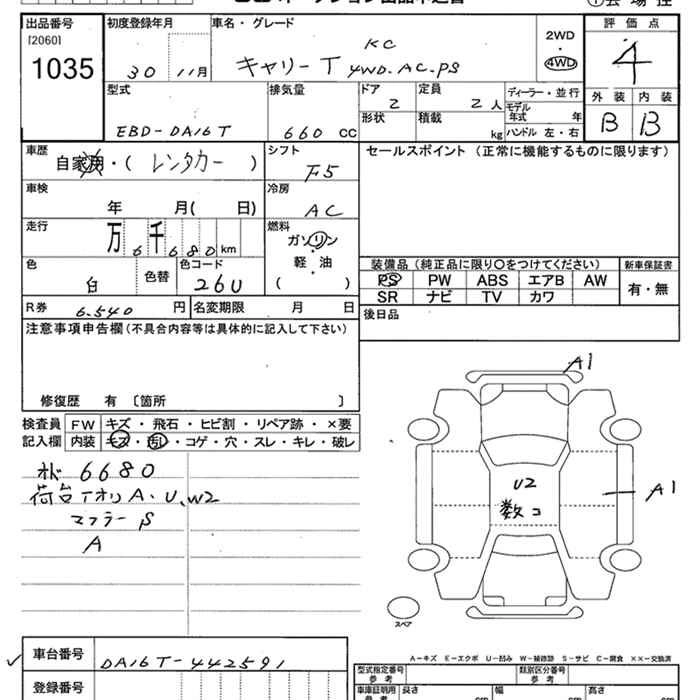 出品番号 初度登録年月 車名・グレード 評価点
[2060]
1035
30 11月
KC
キャリーT 4WD.AC.PS
2WD
・
4WD
4
外装 内装
B B
型式 排気量 ドア 定員 ディーラー・並行
EBD-DA16T 660 CC 2 2人
モデル年式 年
形状 積載 kg ハンドル 左・右
車歴 シフト セールスポイント (正常に機能するものに限ります)
自家用・( レンタカー ) F5
車検 冷房
年 月( 日) AC
走行 燃料
万 6 千 6 8 0 km ガソリン
・
軽・油
色 色替 色コード
白 26U ( )
装備品(純正品に限り〇をつけてください) 新車保証書
PS PW ABS エアB AW 有・無
SR ナビ TV カワ
R券 6.540 円 名変期限 月 日
後日品
注意事項申告欄(不具合内容等は具体的に記入して下さい)
修復歴 有 〔箇所 〕
検査員 FW キズ・飛石・ヒビ割・リペア跡・×要
記入欄 内装 キズ・汚レ・コゲ・穴・スレ・キレ・破レ
オド 6680
荷台アオリ A、U、W2
マフラー S
A
A1
U2
数コ
A1
スペア
A-キズ E-エクボ U-凹み W-補修跡 S-サビ C-腐食 ××-交換済
車台番号 DA16T-442591
登録番号
型式指定番号 参考 類別区分番号 参考
車庫証明用 参考 長さ cm 幅 cm 高さ cm